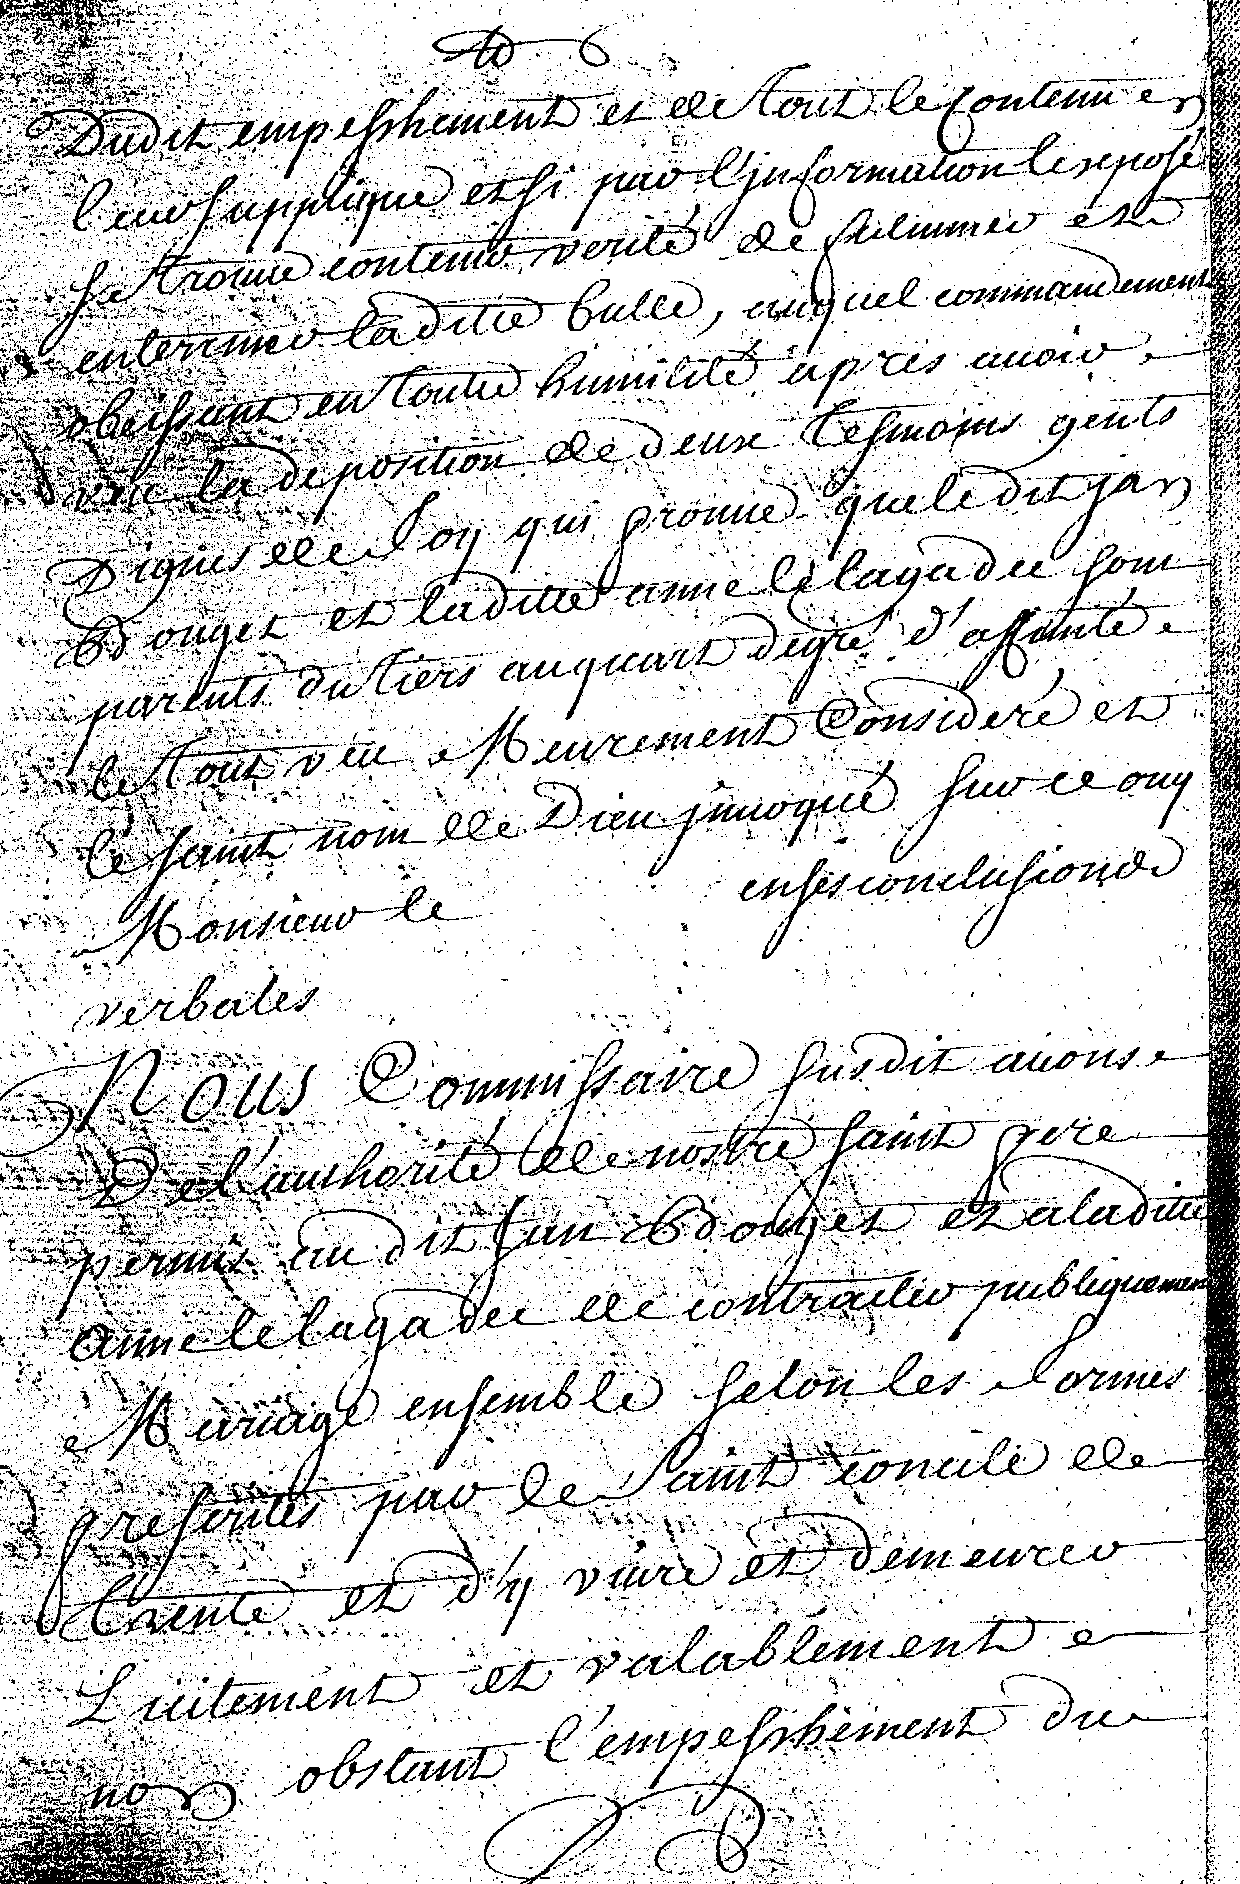 Dudit empeschement et de tout le contenu en
leur supplique et si par l'jnformation lexposé
se trouue contenir verité de fulminer et
enteriner laditte bulle, auquel commandement
obeissant en toutte humilité apres auoir
veu la deposition de deux tesmoins gents
Dignes de foy qui prouue que ledit jan
Bouget et laditte anne le lagadec sont
parents du tiers au quart degré d'affinité
le tout veu Meurement Consideré et
le saint nom de Dieu jnuoqué sur ce ouy
Monsieur le en ses conclusions
verbales
Nous Commissaire susdit auons
De l'authorité de nostre saint pere
permis au dit Jan Bouget et a laditte
anne le lagadec de contracter publiquement
Mariage ensemble selon les formes
prescrittes par le saint concile de
trente et d'y viure et demeurer
Licitement et valablement
non obstant l'empeschement du